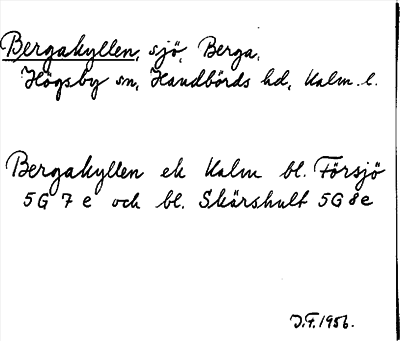 Bergakyllen, sjö, Berga,
Högsby sn, Handbörds hd, Kalm. l.
Bergakyllen ek Kalm bl. Försjö
5G 7e och bl. Skärshult 5G8e
J.F. 1956.